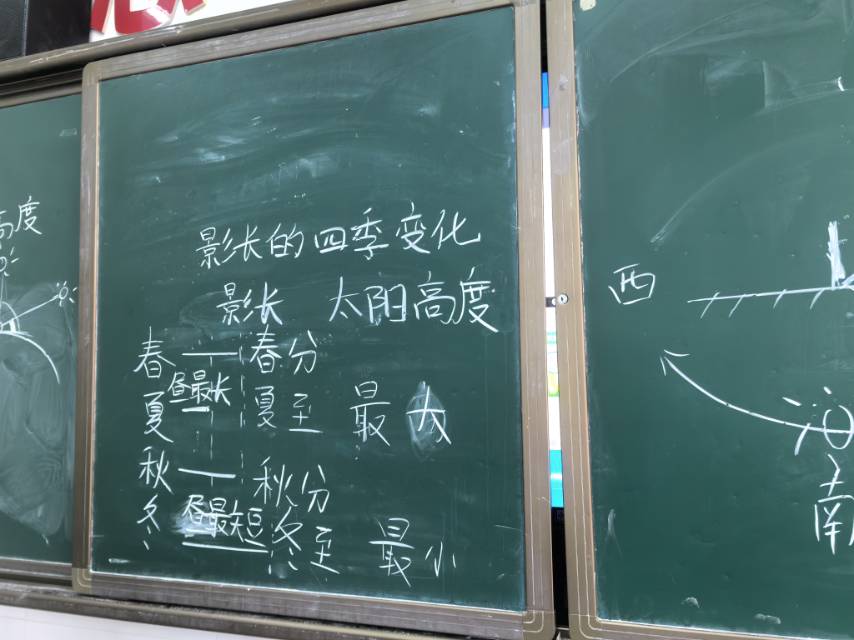 高度
影长的四季变化
影长 太阳高度
春 春分
昼最长
夏 夏至 最大
秋 秋分
昼最短
冬 冬至 最小
西
南